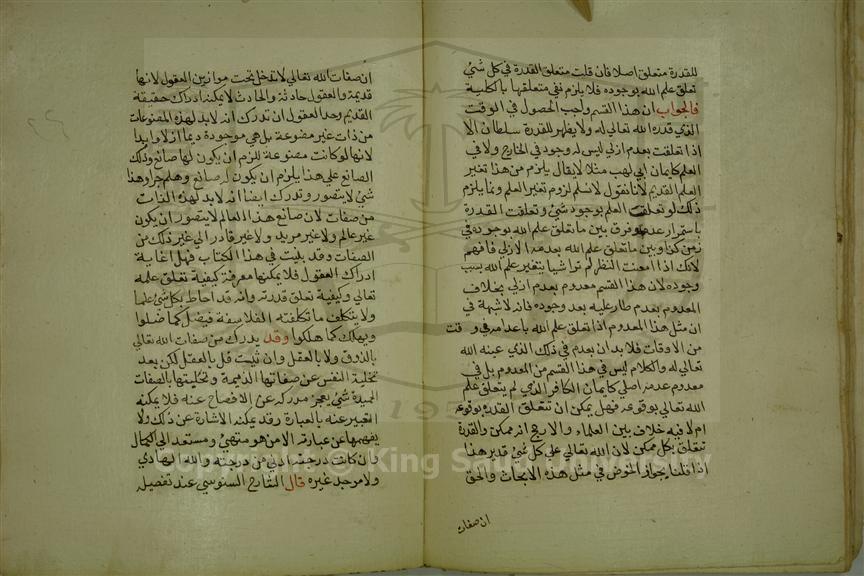 للقدرة متعلق اصلا فان قلت متعلق القدرة في كل شئ
تعلق علم الله بوجوده فلا يلزم نفي متعلقها بالكلية
فالجواب ان هذا القسم واجب الحصول في الوقت
الذي قدره الله تعالى له ولا يظهر للقدرة سلطان الا
اذا تعلقت بعدم ازلي ليس له وجود في الخارج ولا في
العلم كايمان ابي لهب مثلا لا يقال يلزم من هذا تغير
العلم القديم لانا نقول لا نسلم لزوم تغير العلم وانما يلزم
ذلك لو تعلقت العلم بوجود شئ وتعلقت القدرة
باستمرار عدمه وفرق بين ما تعلق علم الله بوجوده في
زمن كذا وبين ما تعلق علم الله بعدمه الازلي فافهم
لانك اذا امعنت النظر لم تر اشيا يتغير علم الله بسبب
وجوده لان هذا القسم معدوم بعدم ازلي بخلاف
المعدوم بعدم طار عليه بعد وجوده فانه لا شبهة في
ان مثل هذا المعدوم اذا تعلق علم الله باعدامه في وقت
من الاوقات فلا بد ان يعدم في ذلك الذي عينه الله
تعالى له والكلام ليس في هذا القسم من المعدوم بل في
معدوم عدمه اصلي كايمان الكافر الذي لم يتعلق علم
الله تعالى بوقوعه فهل يمكن ان تتعلق القدرة بوقوعه
ام لا فيه خلاف بين العلماء والارجح انه ممكن والقدرة
تتعلق بكل ممكن لان الله تعالى على كل شئ قدير هذا
اذا قلنا بجواز الخوض في مثل هذه الابحاث والحق
ان صفات
ان صفات الله تعالى لا تدخل تحت موازين العقول لانها
قديمة والعقول حادثة والحادث لا يمكنه ادراك حقيقة
القديم وحد العقول ان تدرك انه لا بد لهذه المصنوعات
من ذات غير مصنوعة بل هي موجودة ديما ازلا وابدا
لانها لو كانت مصنوعة للزم ان يكون لها صانع وذلك
الصانع على هذا يلزم ان يكون له صانع وهلم جرا وهذا
شئ لا يتصور وتدرك ايضا انه لا بد لهذه الذات
من صفات لان صانع هذا العالم لا يتصور ان يكون
غير عالم ولا غير مريد ولا غير قادر الى غير ذلك من
الصفات وقد بينت في هذا الكتاب فهل اغاية
ادراك العقول فلا يمكنها معرفة كيفية تعلق علمه
تعالى وكيفية تعلق قدرته وانه قد احاط بكل شئ علما
ولا يتكلف ما تكلفته الفلاسفة فيضل كما ضلوا
ويهلك كما هلكوا وقد يدرك من صفات الله تعالى
بالذوق ولا بالعقل وان ثبتت قل بالعقل لكن بعد
تخلية النفس عن صفاتها الذميمة وتحليتها بالصفات
الحميدة شئ يعجز مدركه عن الافصاح عنه فلا يمكنه
التعبير عنه بالعبارة وقد يمكنه الاشارة عن ذلك ولا
يفهمها عن عبارته الا من هو منتهئ ومستعد الى الكمال
وان كانت درجته ادنى من درجته والله الهادي
ولا موجد غيره قال الشارح السنوسي عند تفصيله
Copyright © King Saud University
1957